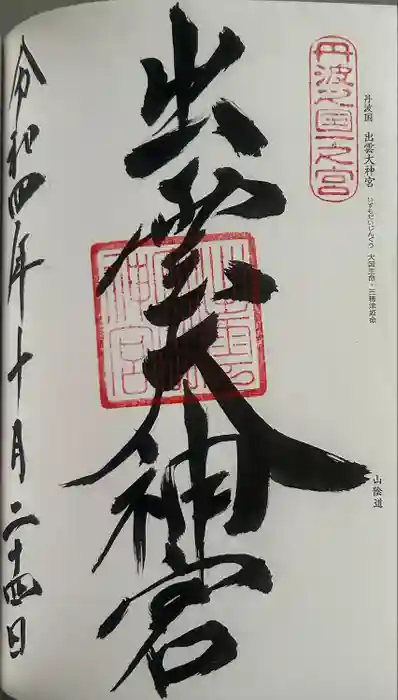 丹波国之一之宮
丹波国 出雲大神宮
いずもだいじんぐう 大国主命・三穂津姫命
山陰道
出雲大神宮
令和四年十月二十四日